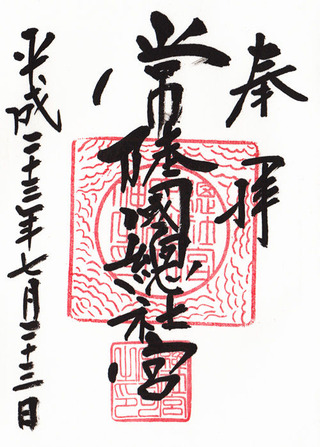 奉拝
常陸國總社宮
平成二十三年七月二十三日